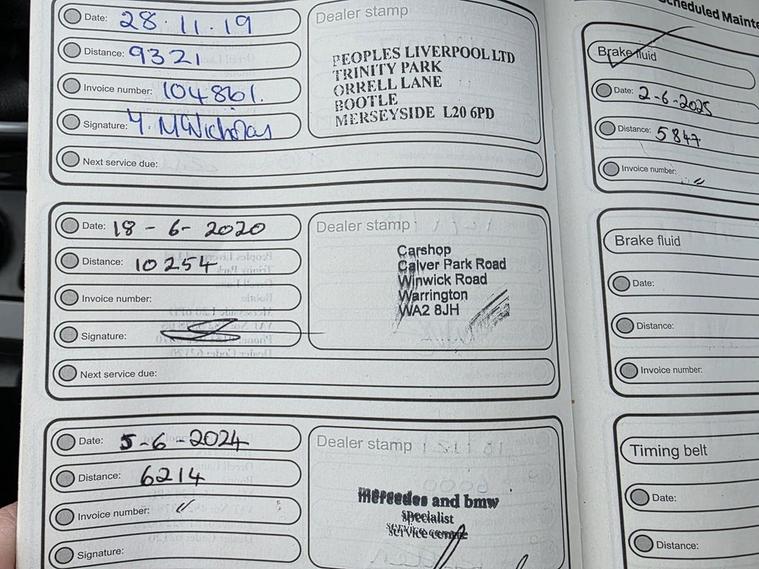 Date: 28.11.19
Distance: 9321
Invoice number: 104861.
Signature: Y. McNicholas
Next service due:
Dealer stamp
PEOPLES LIVERPOOL LTD
TRINITY PARK
ORRELL LANE
BOOTLE
MERSEYSIDE L20 6PD
Date: 18-6-2020
Distance: 10254
Invoice number:
Signature:
Next service due:
Dealer stamp
Carshop
Calver Park Road
Winwick Road
Warrington
WA2 8JH
Date: 5-6-2024
Distance: 6214
Invoice number: "
Signature:
Dealer stamp
mercedes and bmw
specialist
service centre
Scheduled Mainte
Brake fluid
Date: 2-6-2025
Distance: 5847
Invoice number: "
Brake fluid
Date:
Distance:
Invoice number:
Timing belt
Date:
Distance: